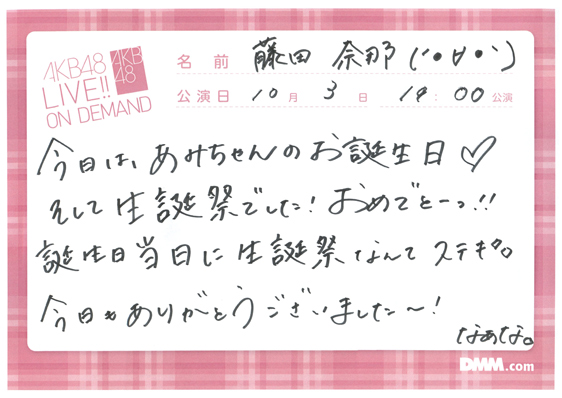 AKB48
LIVE!!
ON DEMAND
AKB
48
名 前 藤田 奈那 (´●∀●`)
公演日 10月 3日 19:00公演
今日は、あみちゃんのお誕生日♡
そして生誕祭でした！おめでとーっ!!
誕生日当日に生誕祭なんてステキ。
今日もありがとうございました〜！
なぁな。
DMM.com